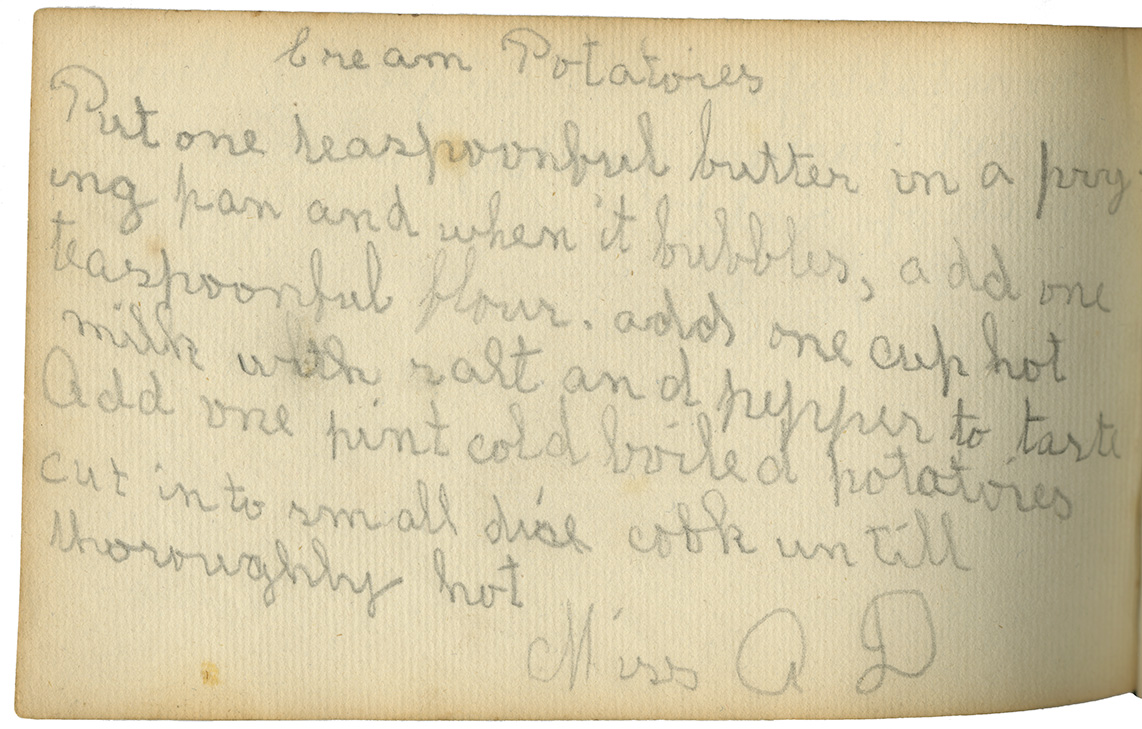 Cream Potatoies
Put one teaspoonful butter in a fry-
ing pan and when it bubbles, add one
teaspoonful flour. adds one cup hot
milk with salt and pepper to taste
Add one pint cold boiled potatoies
cut in to small dice cook un till
thoroughly hot
Miss A D